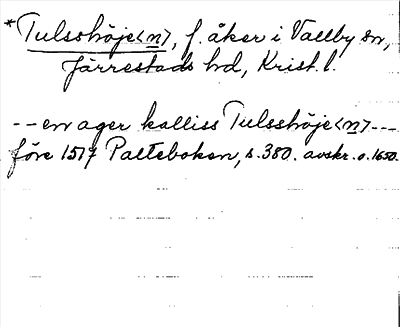 *Tulsshöje<n>, f. åker i Vallby sn,
Järrestads hd, Krist. l.
-- en ager kalliss Tulsshöje<n> ---
före 1517 Palteboken, s. 380. avskr. o. 1650.